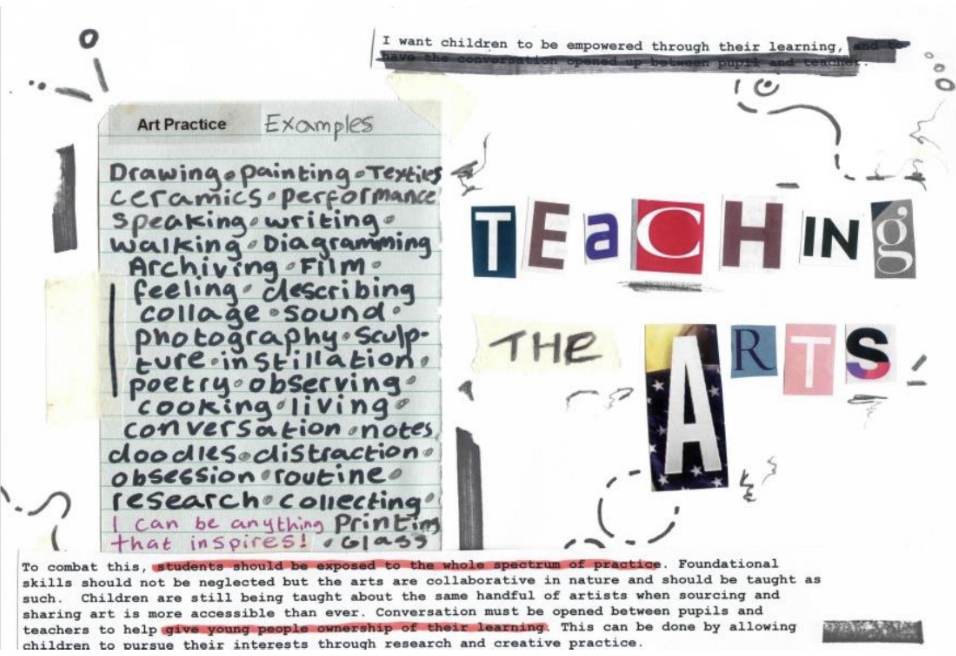 I want children to be empowered through their learning, and to
have the conversation opened up between pupil and teacher.
Art Practice Examples
Drawing • painting • Textiles
ceramics • performance
speaking • writing •
walking • Diagramming
Archiving • Film •
feeling • describing
collage • sound •
photography • sculp-
ture • instillation •
poetry • observing •
cooking • living •
conversation • notes
doodles • distraction •
obsession • routine •
research • collecting •
I can be anything Printing
that inspires! • Glass
TEaCHINg
THE ARTS
To combat this, students should be exposed to the whole spectrum of practice. Foundational
skills should not be neglected but the arts are collaborative in nature and should be taught as
such.  Children are still being taught about the same handful of artists when sourcing and
sharing art is more accessible than ever. Conversation must be opened between pupils and
teachers to help give young people ownership of their learning. This can be done by allowing
children to pursue their interests through research and creative practice.